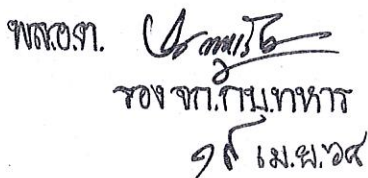 พล.อ.ต.
รอง จก.กบ.ทหาร
๑๙ เม.ย.๖๔